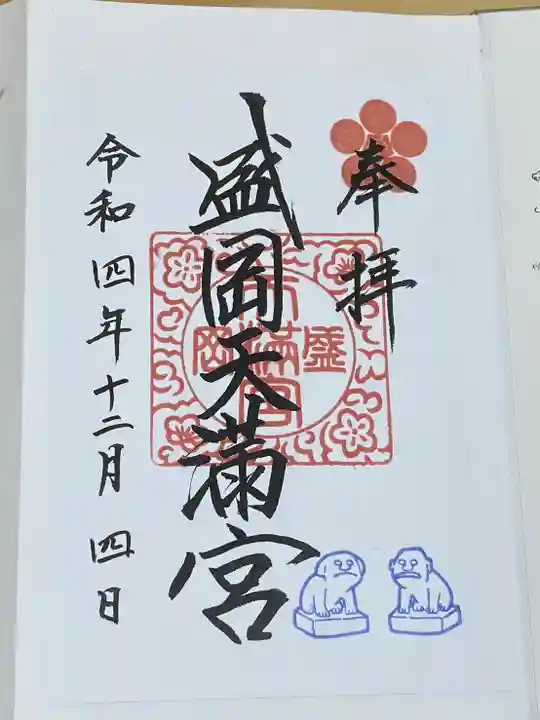 奉拝
盛岡天満宮
盛岡
天満宮
令和四年十二月四日